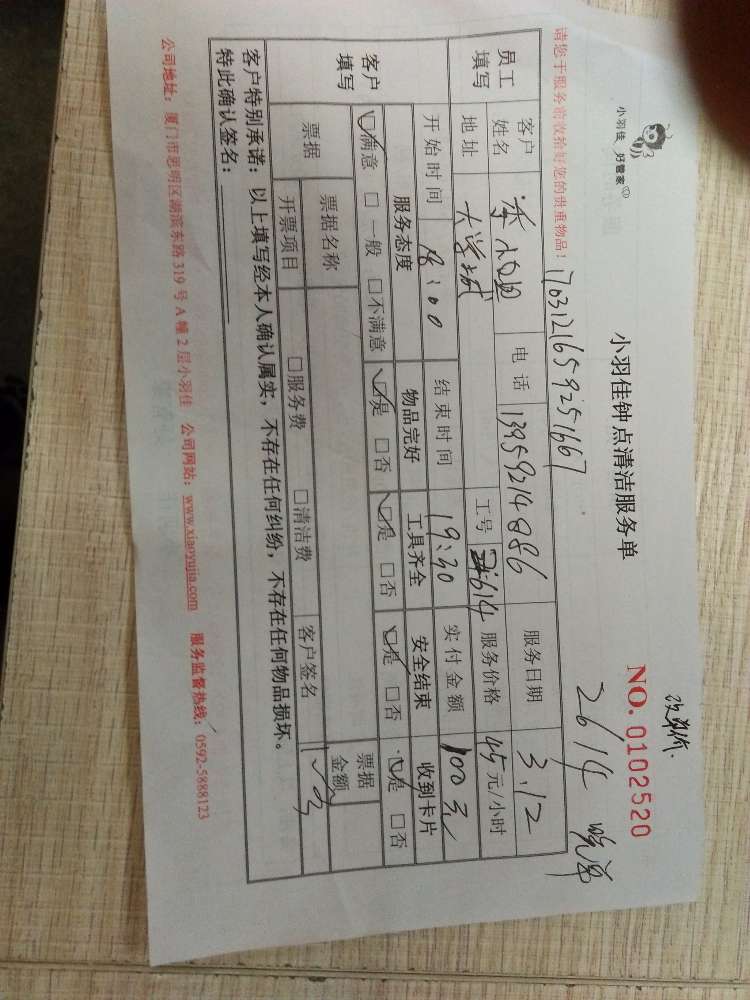 小羽佳 好管家
小羽佳钟点清洁服务单
NO. 0102520
改单价.
请您于服务前收拾好您的贵重物品！
1703121659251667
2614 晚单
员工填写
客户姓名 电话 13959214886 服务日期 3.12
地址 大学城 工号 2614 服务价格 45元/小时
客户填写
开始时间 18:00 结束时间 19:30 实付金额 100元
服务态度 物品完好 工具齐全 安全结束 收到卡片
☑满意 □一般 □不满意 ☑是 □否 ☑是 □否 ☑是 □否 ☑是 □否
票据 票据名称 票据金额
开票项目 □服务费 □清洁费 客户签名
客户特别承诺：以上填写经本人确认属实，不存在任何纠纷，不存在任何物品损坏。
特此确认签名：
公司地址：厦门市思明区湖滨东路319号A幢2层小羽佳 公司网站：www.xiaoyujia.com 服务监督热线：0592-5888123